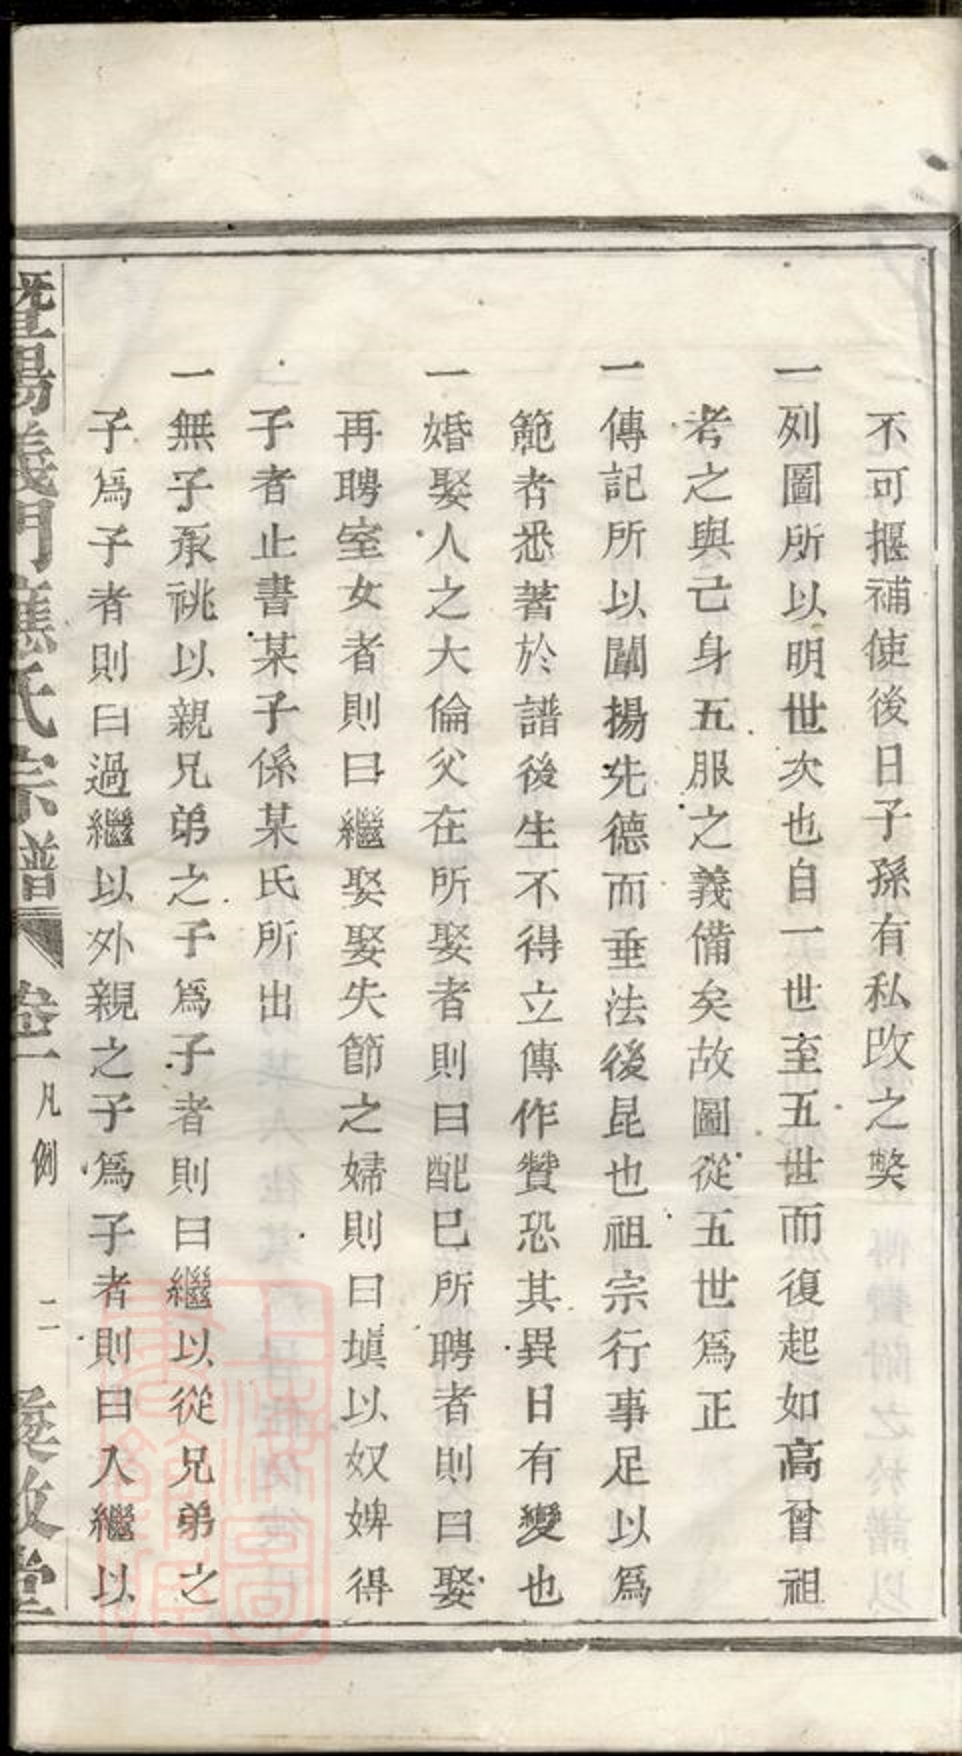 不可揠補使後日子孫有私改之獘
一列圖所以明世次也自一世至五世而復起如高曾祖
考之與己身五服之義備矣故圖從五世爲正
一傳記所以闡揚先德而垂法後昆也祖宗行事足以爲
範者悉著於譜後生不得立傳作贊恐其異日有變也
一婚娶人之大倫父在所娶者則曰配已所聘者則曰娶
再聘室女者則曰繼娶娶失節之婦則曰塡以奴婢得
子者止書某子係某氏所出
一無子承祧以親兄弟之子爲子者則曰繼以從兄弟之
子爲子者則曰過繼以外親之子爲子者則曰入繼以
暨陽義門 氏宗譜 卷一 凡例 二 堂